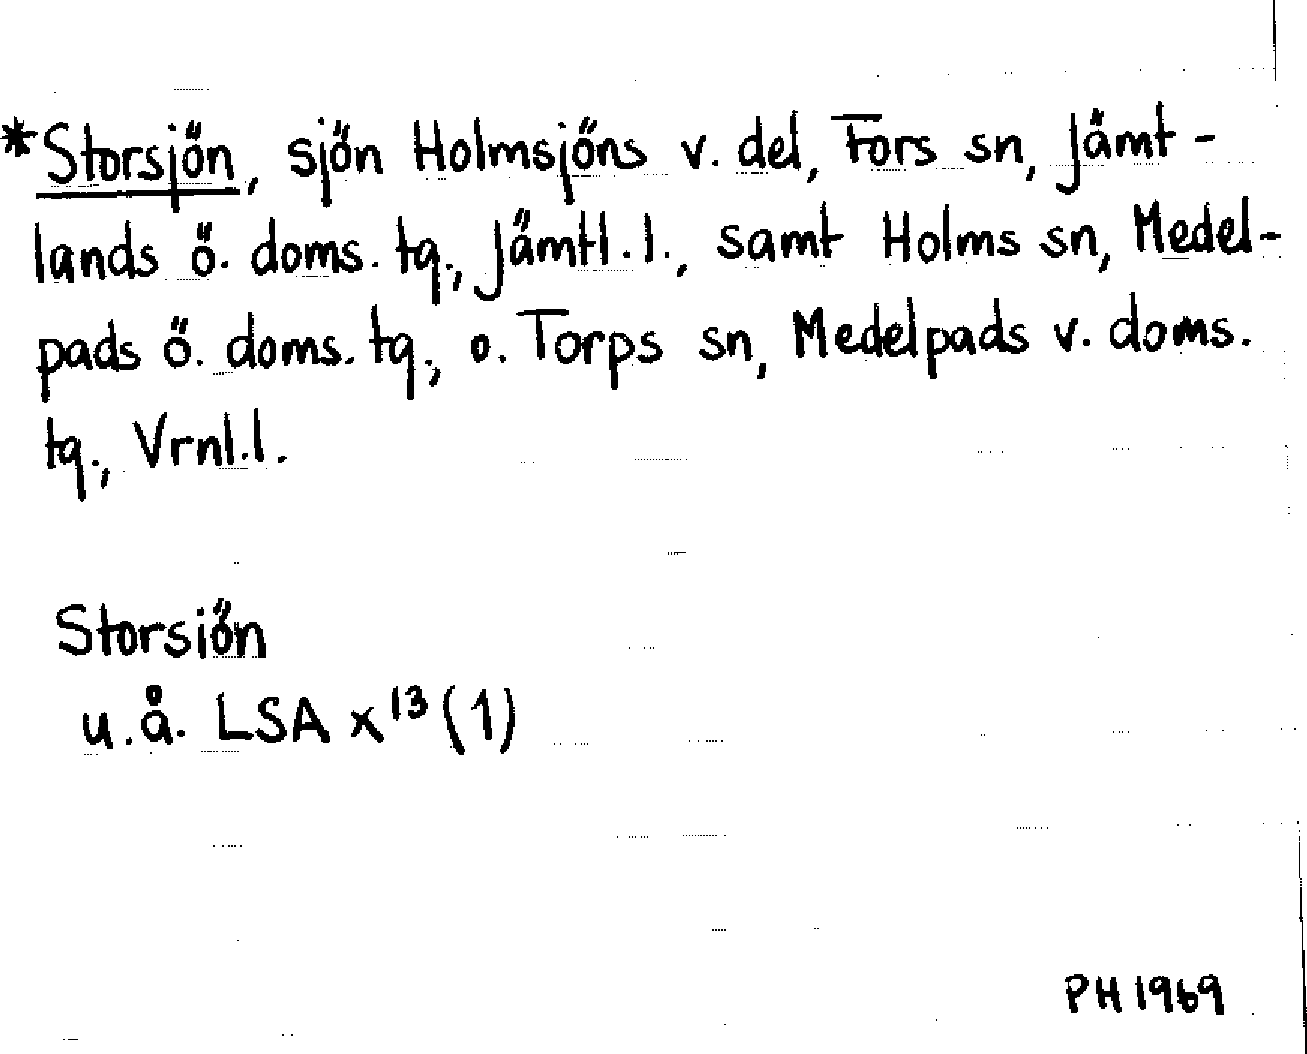 *Storsjön, sjön Holmsjöns v. del, Fors sn, Jämt-
lands ö. doms. tg., Jämtl. l., samt Holms sn, Medel-
pads ö. doms. tg., o. Torps sn, Medelpads v. doms.
tg., Vrnl. l.
Storsiön
u.å. LSA x¹³(1)
PH 1969